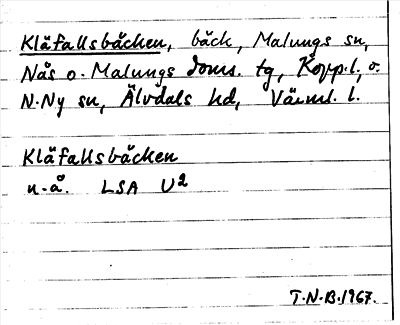 Kläfallsbäcken, bäck, Malungs sn,
Nås o. Malungs doms. tg, Kopp.l., o.
N.Ny sn, Älvdals hd, Värml. l.
Kläfallsbäcken
n.å. LSA U2
T.N.B.1967.